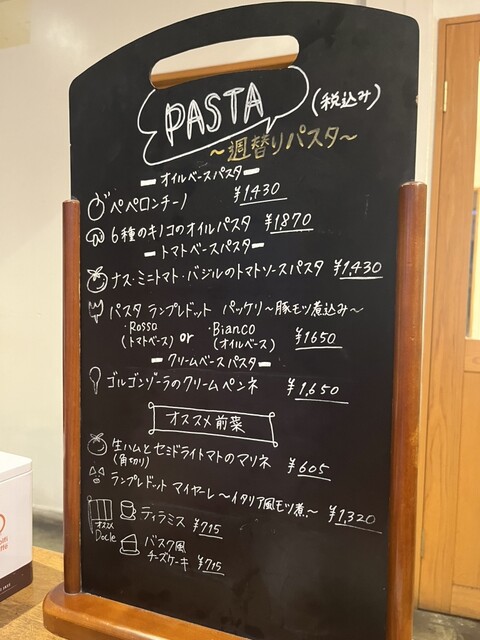 PASTA
(税込み)
～週替りパスタ～
ーオイルベースパスター
ペペロンチーノ ¥1,430
6種のキノコのオイルパスタ ¥1870
ートマトベースパスター
ナス・ミニトマト・バジルのトマトソースパスタ ¥1,430
パスタ ランプレドット パッケリ～豚モツ煮込み～
・Rosso or ・Bianco
(トマトベース) (オイルベース) ¥1650
ークリームベースパスター
ゴルゴンゾーラのクリームペンネ ¥1,650
オススメ前菜
生ハムとセミドライトマトのマリネ ¥605
(角切り)
ランプレドット マイヤーレ～イタリア風モツ煮～ ¥1,320
オススメ
Docle
ティラミス ¥715
バスク風
チーズケーキ ¥715